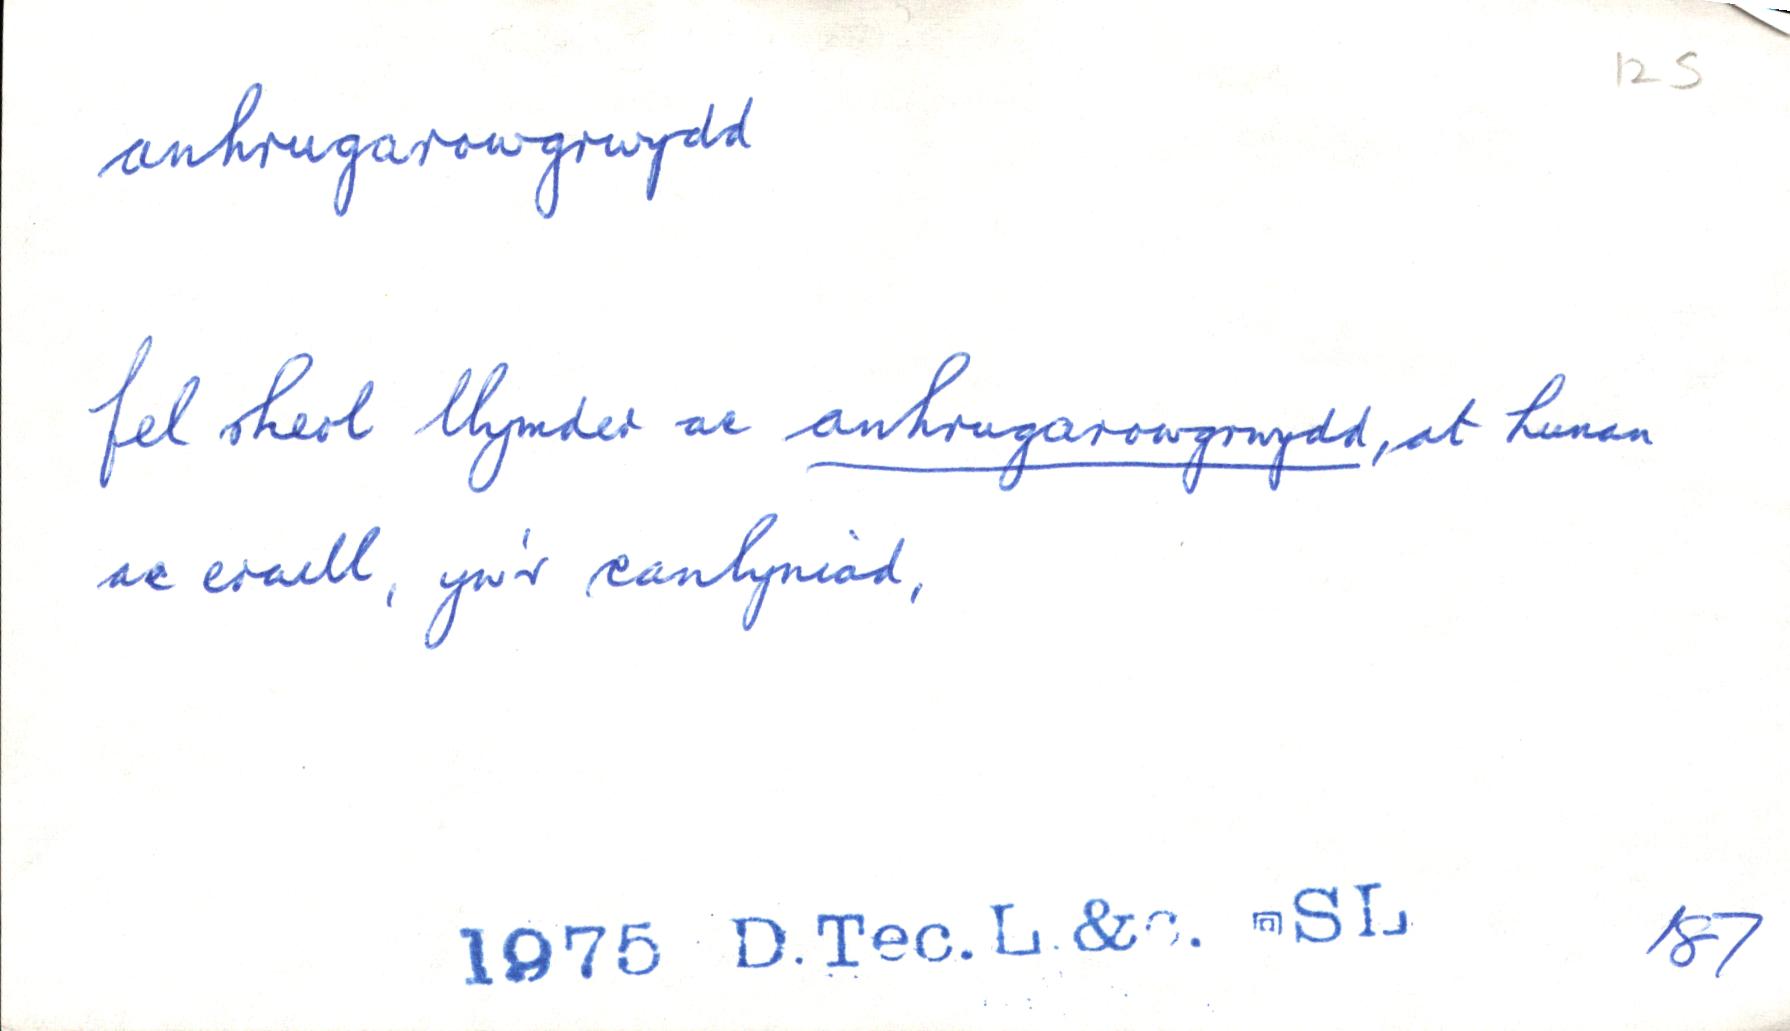 12 S
anhrugarowgrwydd
fel rheol llymder ac anhrugarowgrwydd, at hunan
ac eraill, yw'r canlyniad,
1975 D. Tec. L &c. SL
187